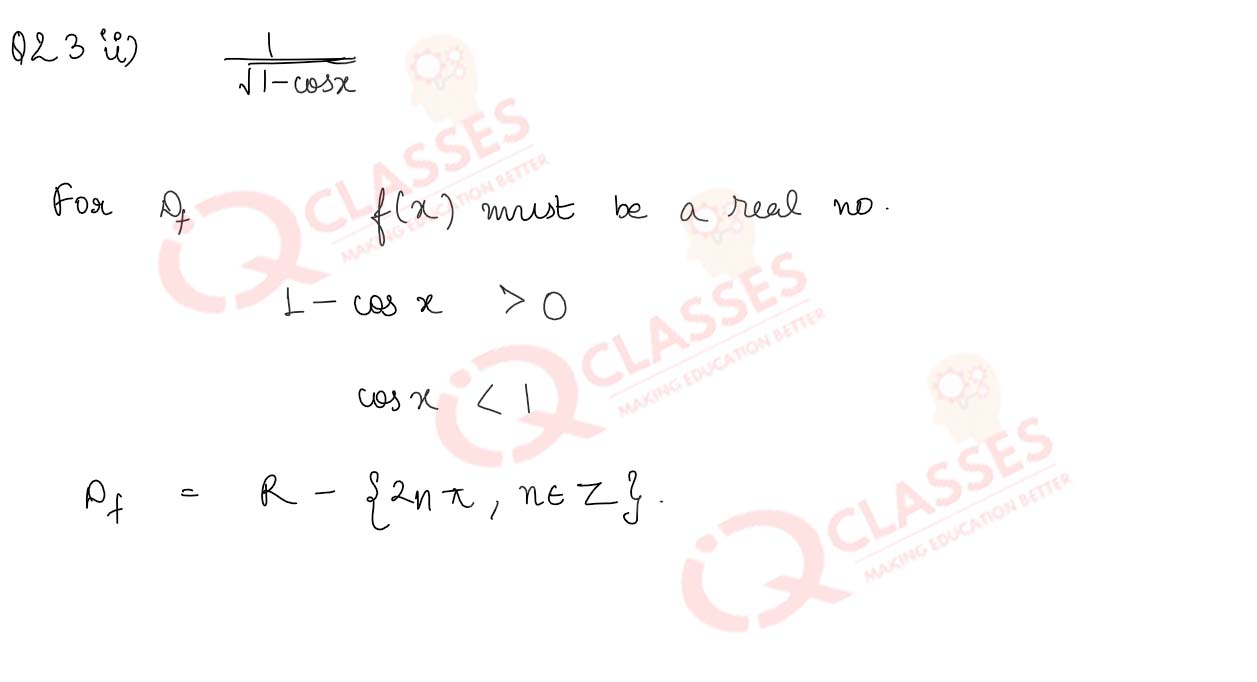 Q23 ii) 1/√1-cosx
For Df f(x) must be a real no.
1 - cos x > 0
cos x < 1
Df = R - {2nπ, n∈Z}.
iQ CLASSES
MAKING EDUCATION BETTER
iQ CLASSES
MAKING EDUCATION BETTER
iQ CLASSES
MAKING EDUCATION BETTER